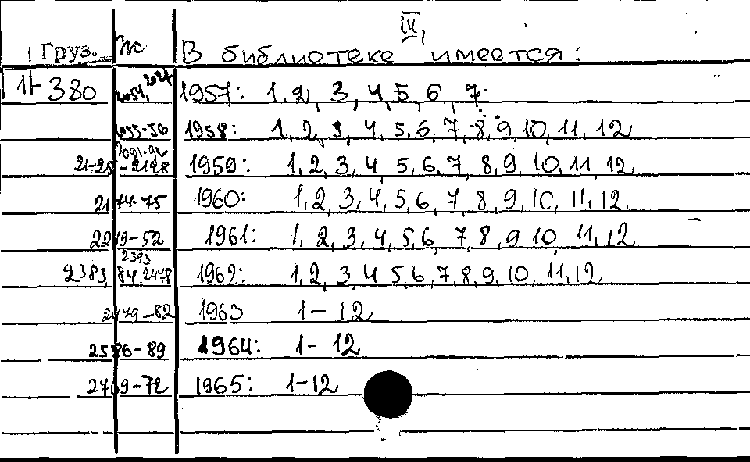 IV,
Груз. № В библиотеке имеется:
11-380 1957: 1, 2, 3, 4, 5, 6, 7
1958: 1, 2, 3, 4, 5, 6, 7, 8, 9, 10, 11, 12
1959: 1, 2, 3, 4, 5, 6, 7, 8, 9, 10, 11, 12
1960: 1, 2, 3, 4, 5, 6, 7, 8, 9, 10, 11, 12
2249-52 1961: 1, 2, 3, 4, 5, 6, 7, 8, 9, 10, 11, 12
1962: 1, 2, 3, 4, 5, 6, 7, 8, 9, 10, 11, 12
2479-82 1963 1-12
2586-89 1964: 1-12
2769-72 1965: 1-12